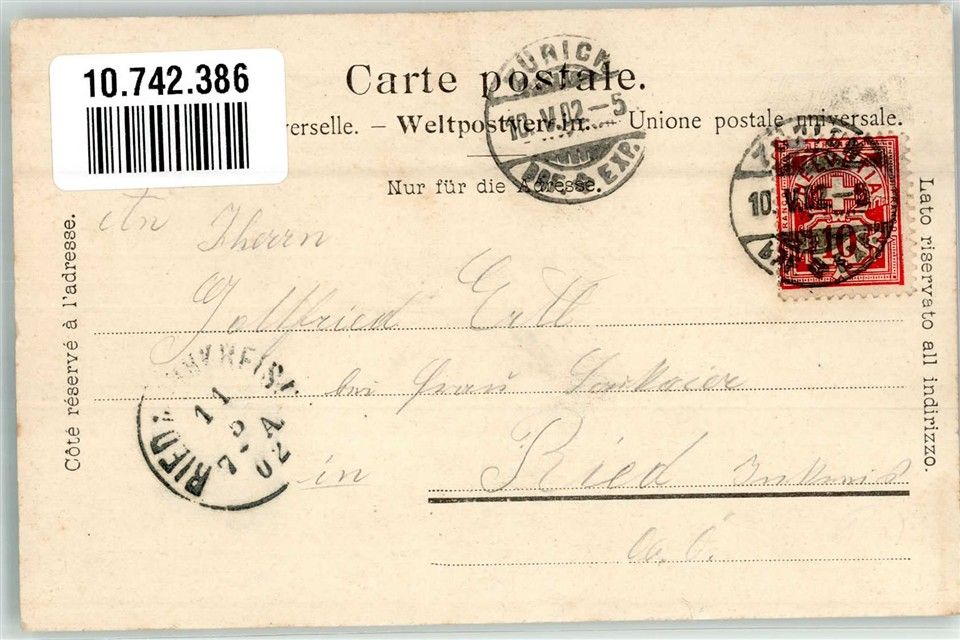 10.742.386
Carte postale.
erselle. – Weltpostverein. – Unione postale universale.
Nur für die Adresse.
Côté réservé à l'adresse.
Lato riservato all indirizzo.
ZÜRICH
10.V.02.–5
BRF. EXP.
10.V.02.–5
HELVETIA
10
An
Herrn
Gottfried Ertl
bei Frau
in Ried Innkreis
O. Ö.
RIED INNKREIS
11
5
7–A
02